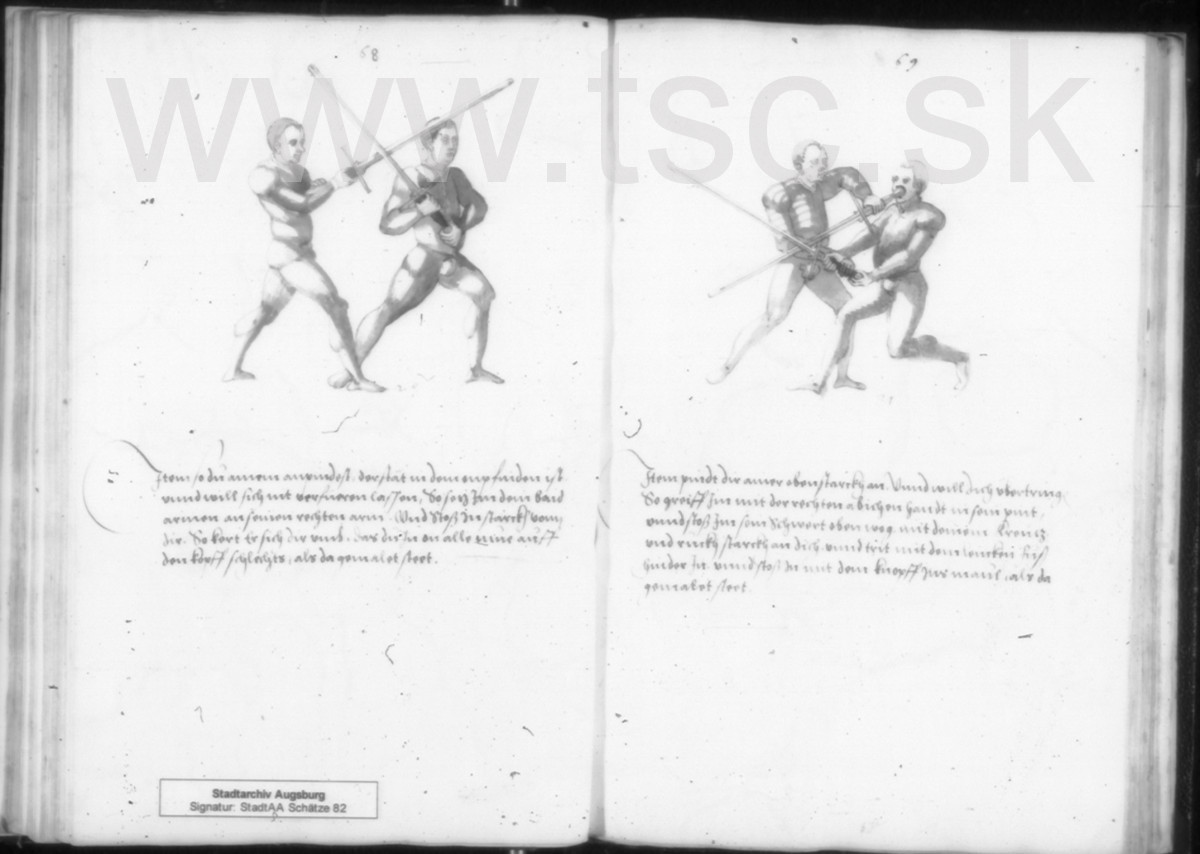 68
69
www.tsc.sk
Item so du ainem anwindest, der stät in dem empfinden ist
vnnd will sich nit verfueren lassen, So setz Im dem baid
armen an seinen rechten arm. Vnd stoß In starckh vonn
dir. So kert er sich dir vmb, das du In on alle
den kopff schlechts, als da gemalet steet.
Item pindt dir ainer oben starckh an, Vnnd will dich vbertring
So greiff Im mit der rechten äbichen handt in sein pint,
vnnd stoß Im sein Schwert oben weg mit deinem Kreutz
vnd ruckh starckh an dich, vnnd trit mit dem lencken fuß
hinder In, vnnd stoß In mit dem knopff Ins maul, als da
gemalet steet.
Stadtarchiv Augsburg
Signatur: StadtAA Schätze 82